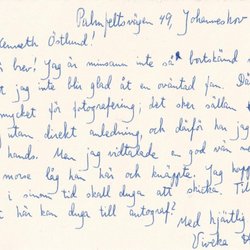 Palmfeltsvägen 49, Johanneshov
Kenneth Östlund!
brev! Jag är minsann inte så bortskämd
jag inte blir glad åt en oväntad fan. Där
mycket för fotografering; det sker sällan
utan direkt anledning, och därför har jag
hands. Men jag vidtalade en god vän
morse låg han här och knäppte. Jag hopp
i sinom tid skall duga att skicka. Till
här kan duga till autograf?
Med hjärtlig
Viveka